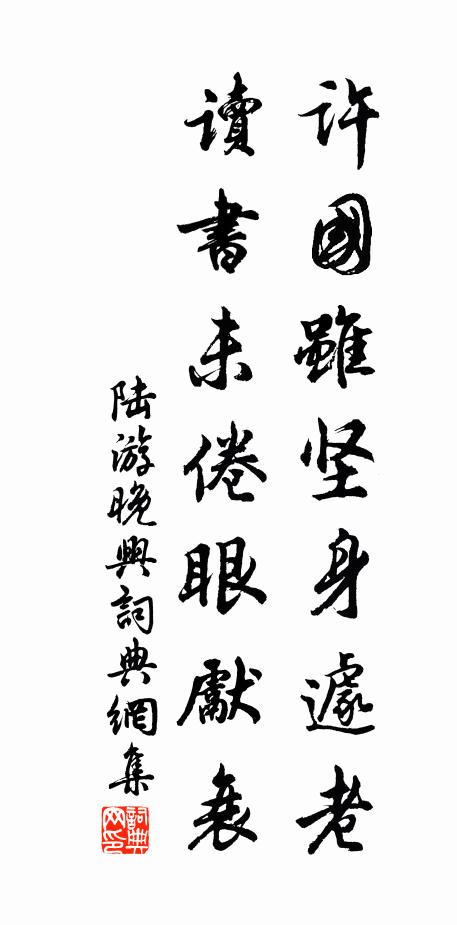 許國雖坚身遽老
讀書未倦眼獻衰
陆游晚興詞典網集
詞典
网印